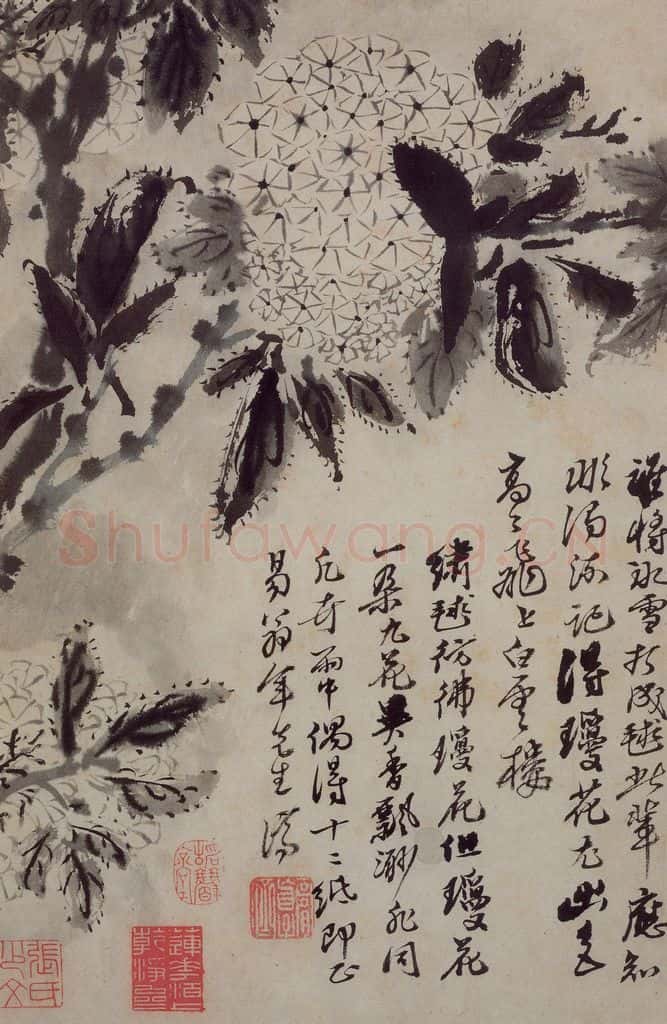 誰將冰雪打成毬此輩應知
濁流記得瓊花出色
高々飛上白雲樓
繡毬彷彿瓊花但瓊花
一朵九花異香飄渺非同
凡卉雨中偶得十二紙即正
易翁年先生 濟
Shufawang.CN